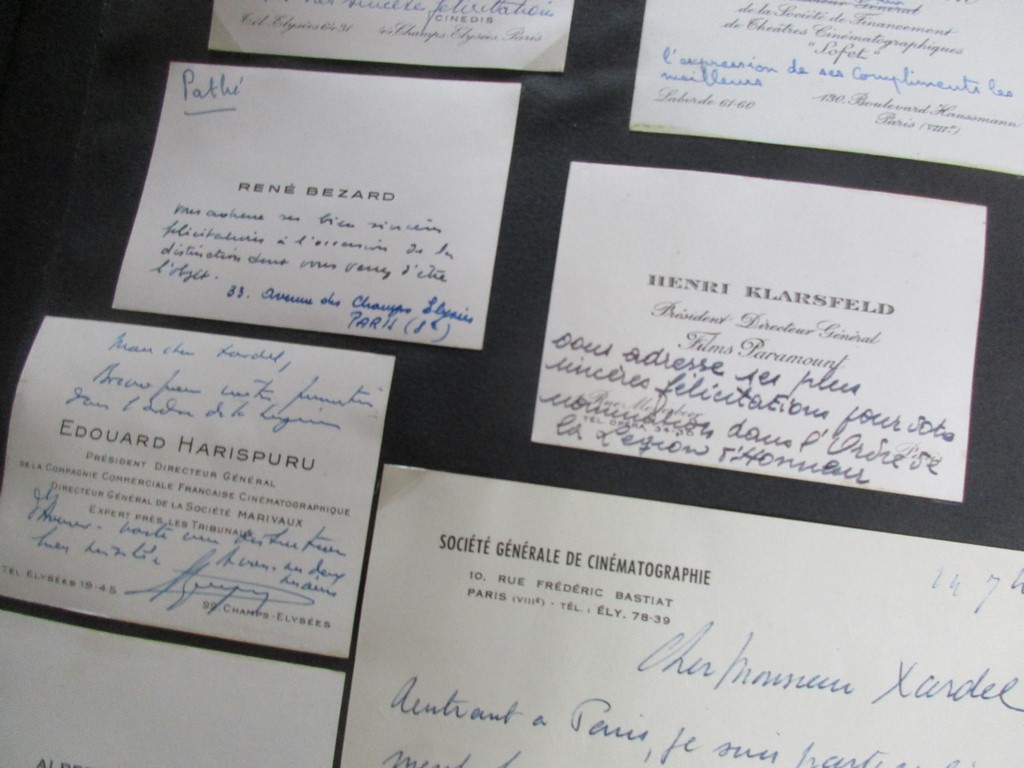 sincère félicitations
CINEDIS
Tél. Elysées 64-31 44 Champs Elysées Paris
Général
de la Société de Financement
de Théâtres Cinématographiques
"Sofet"
l'expression de ses compliments les
meilleurs
Laborde 61-60 130, Boulevard Haussmann
Paris (VIIIe)
Pathé
RENÉ BEZARD
vous adresse ses bien sincères
félicitations à l'occasion de la
distinction dont vous venez d'être
l'objet.
33. Avenue des Champs Elysées
PARIS (8e)
HENRI KLARSFELD
Président Directeur Général
Films Paramount
vous adresse ses plus
sincères félicitations pour votre
nomination dans l'Ordre de
la Légion d'Honneur
Mon cher Xardel,
Bravo pour votre promotion
dans l'ordre de la Légion
EDOUARD HARISPURU
PRÉSIDENT DIRECTEUR GÉNÉRAL
DE LA COMPAGNIE COMMERCIALE FRANÇAISE CINÉMATOGRAPHIQUE
DIRECTEUR GÉNÉRAL DE LA SOCIÉTÉ MARIVAUX
EXPERT PRÈS LES TRIBUNAUX
d'Honneur
bien méritée
TÉL. ELYSÉES 19-45
99, CHAMPS-ELYSÉES
SOCIÉTÉ GÉNÉRALE DE CINÉMATOGRAPHIE
10, RUE FRÉDÉRIC BASTIAT
PARIS (VIIIe) - TÉL. : ÉLY. 78-39
14
Cher Monsieur Xardel
Rentrant à Paris, je suis